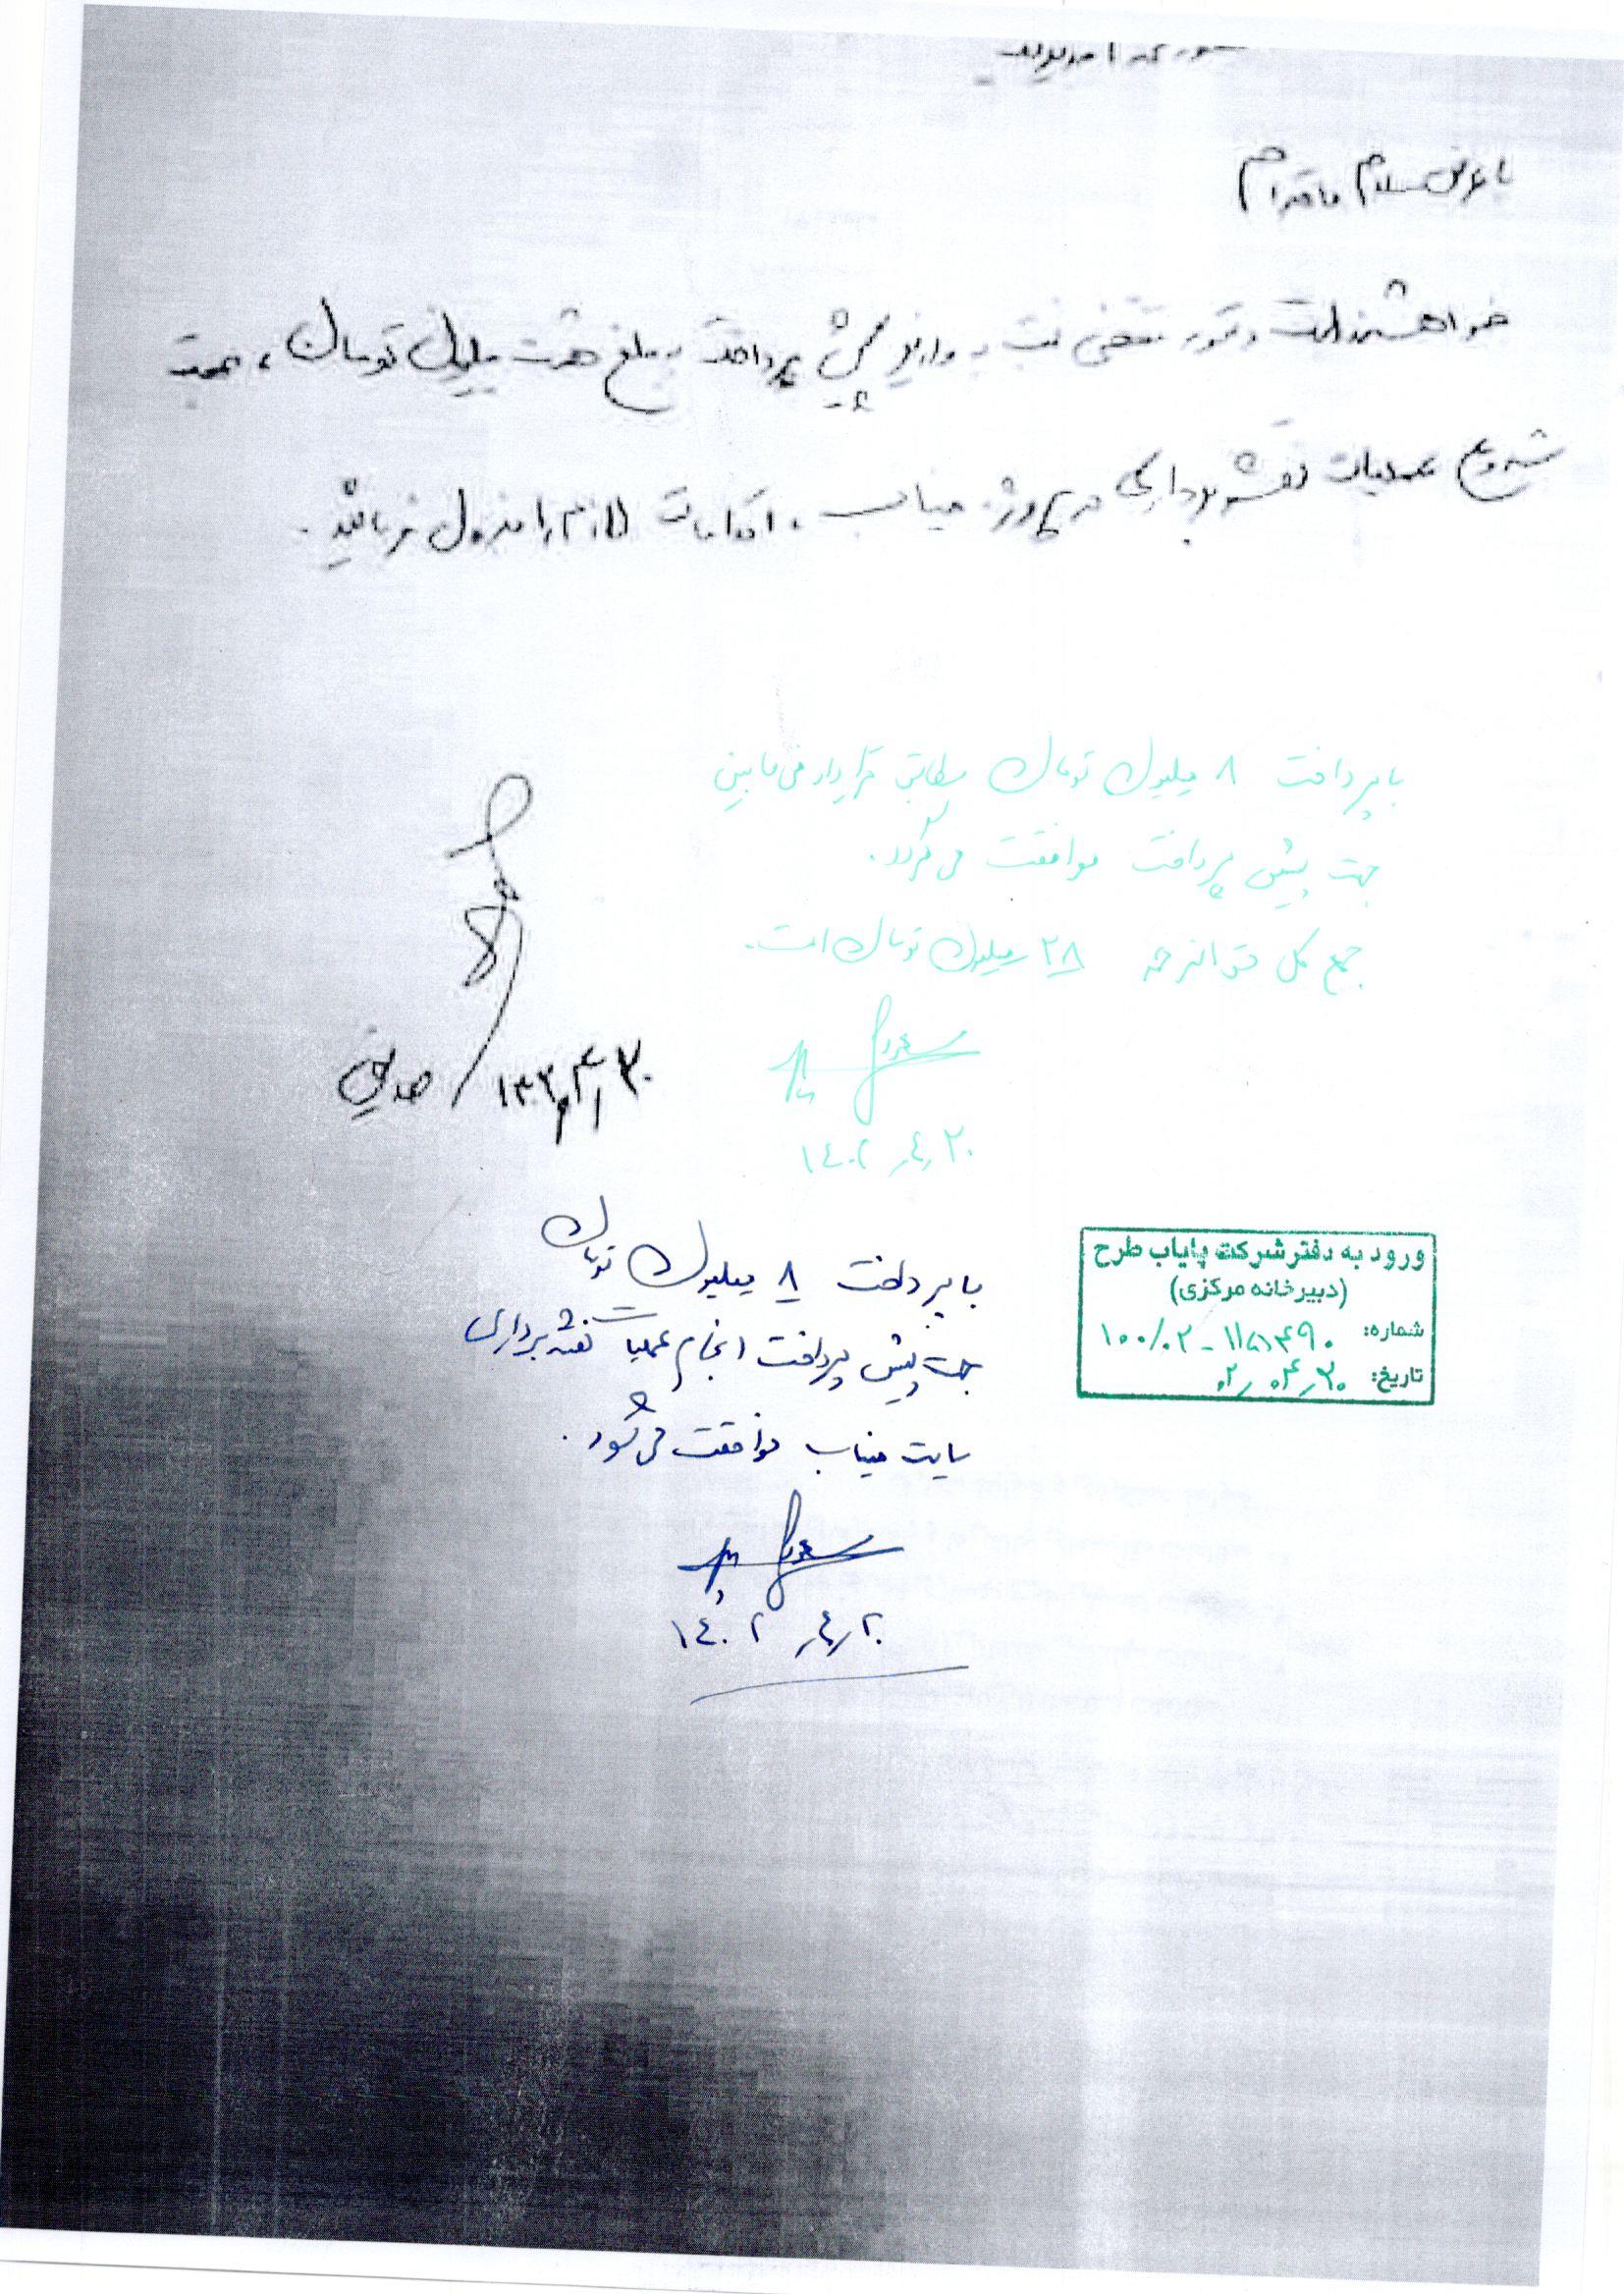 با عرض سلام و احترام
خواهشمند است دستور مقتضی نسبت به واریز پیش پرداخت به مبلغ هشت میلیون تومان، جهت
شروع عملیات نقشه برداری در پروژه میناب، اقدامات لازم را مبذول فرمائید.
با پرداخت ۸ میلیون تومان مطابق قرارداد فی مابین
جهت پیش پرداخت موافقت می گردد.
جمع کل حق الزحمه ۲۸ میلیون تومان است.
۱۴۰۲٫۴٫۲۰
با پرداخت ۸ میلیون تومان
جهت پیش پرداخت انجام عملیات نقشه برداری
سایت میناب موافقت می شود.
۱۴۰۲٫۴٫۲۰
ورود به دفتر شرکت پایاب طرح
(دبیرخانه مرکزی)
شماره:
تاریخ: ۰۲٫۰۴٫۲۰